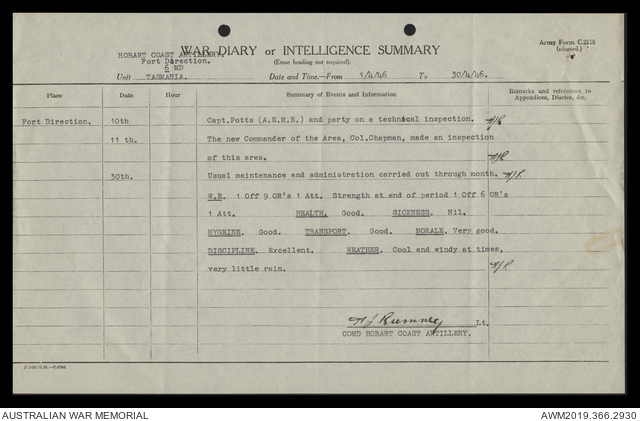 Army Form C.2118
(adapted.)
HOBART COAST ARTILLERY.
WAR DIARY or INTELLIGENCE SUMMARY
Fort Direction.
(Erase heading not required).
6 MD
Unit TASMANIA. Date and Time.—From 1/4/46 To 30/4/46.
Place Date Hour Summary of Events and Information Remarks and references to Appendices, Diaries, &c.
Fort Direction. 10th Capt.Potts (A.E.M.E.) and party on a technical inspection.
11 th. The new Commander of the Area, Col.Chapman, made an inspection
of this area.
30th. Usual maintenance and administration carried out through month.
W.E. 1 Off 9 OR's 1 Att. Strength at end of period 1 Off 6 OR's
1 Att. HEALTH. Good. SICKNESS. Nil.
HYGEINE. Good. TRANSPORT. Good. MORALE. Very good.
DISCIPLINE. Excellent. WEATHER. Cool and windy at times,
very little rain.
Rumney Lt.
COMD HOBART COAST ARTILLERY.
AUSTRALIAN WAR MEMORIAL AWM2019.366.2930